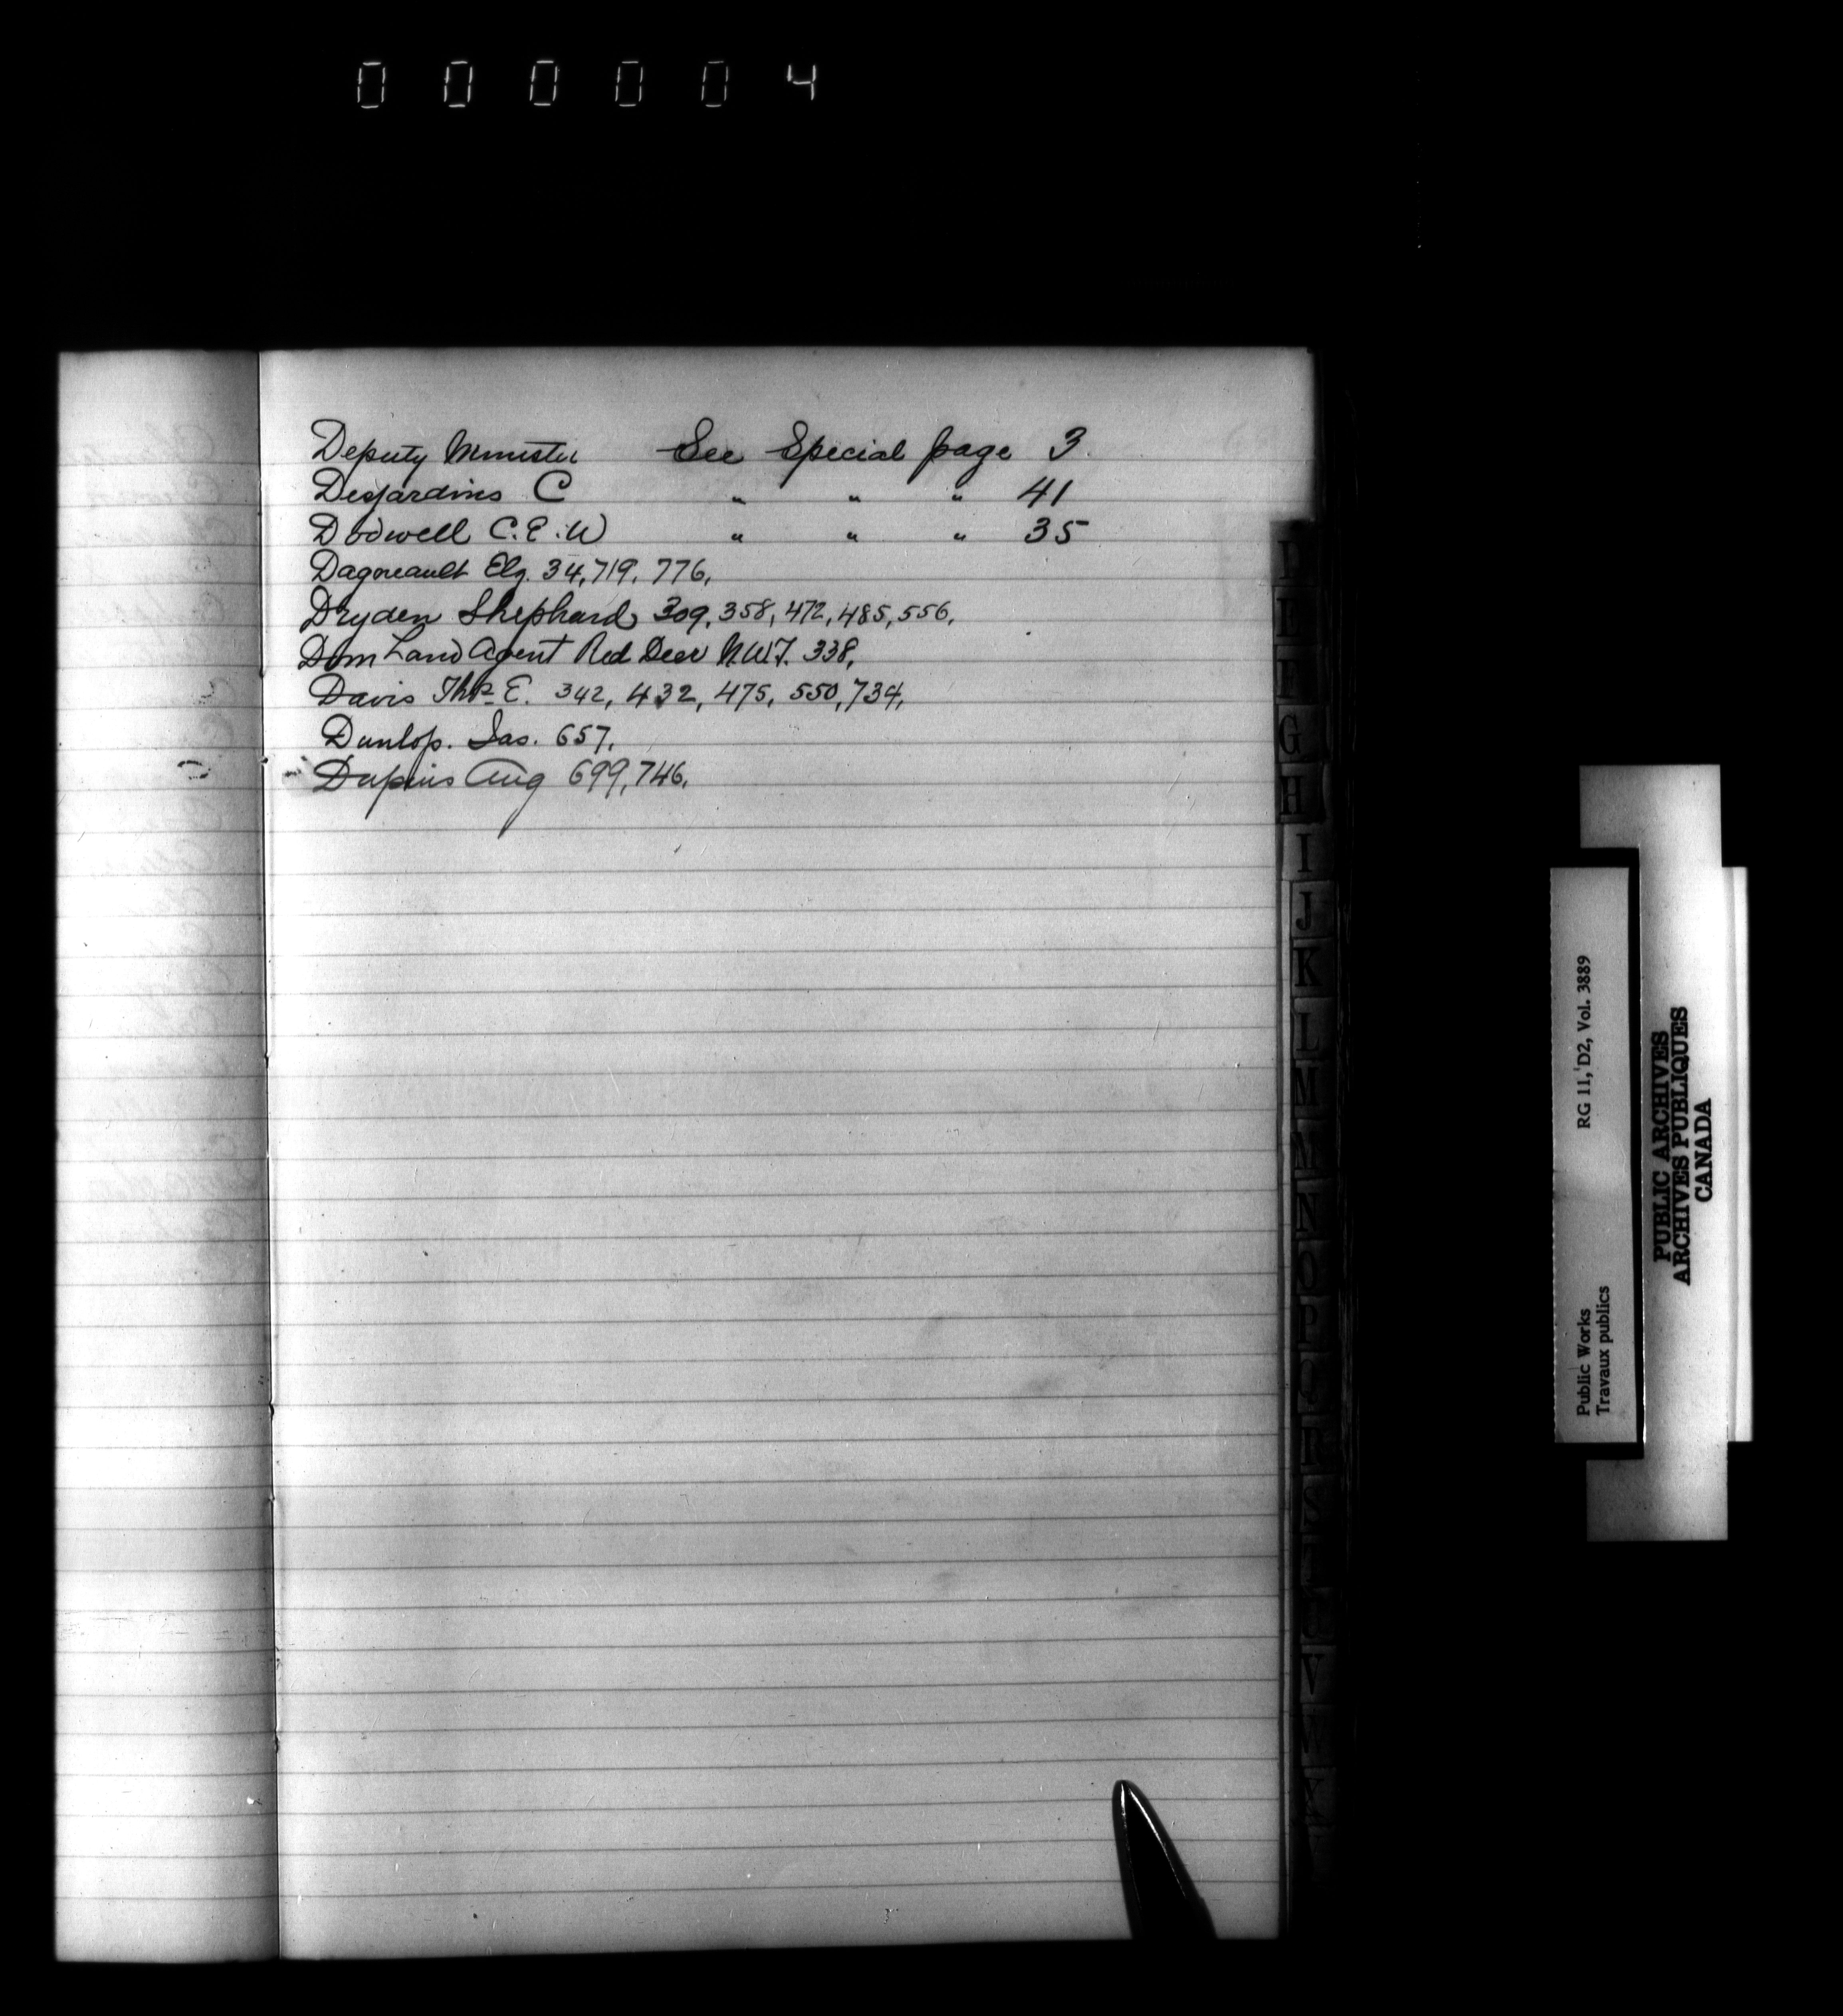 000004
Deputy Minister See Special page 3.
Desjardins C " " " 41
Dodwell C.E.W " " " 35
Dagneault Elz. 34, 719, 776,
Dryden Shephard 309, 358, 472, 485, 556,
Dom Land Agent Red Deer N.W.T. 338,
Davis Thos. E. 342, 432, 475, 550, 734,
Dunlop. Jas. 657,
Dupuis Aug 699, 746,
G
H
I
J
K
L
M
N
O
P
V
RG 11, D2, Vol. 3889
Public Works
Travaux publics
PUBLIC ARCHIVES
ARCHIVES PUBLIQUES
CANADA